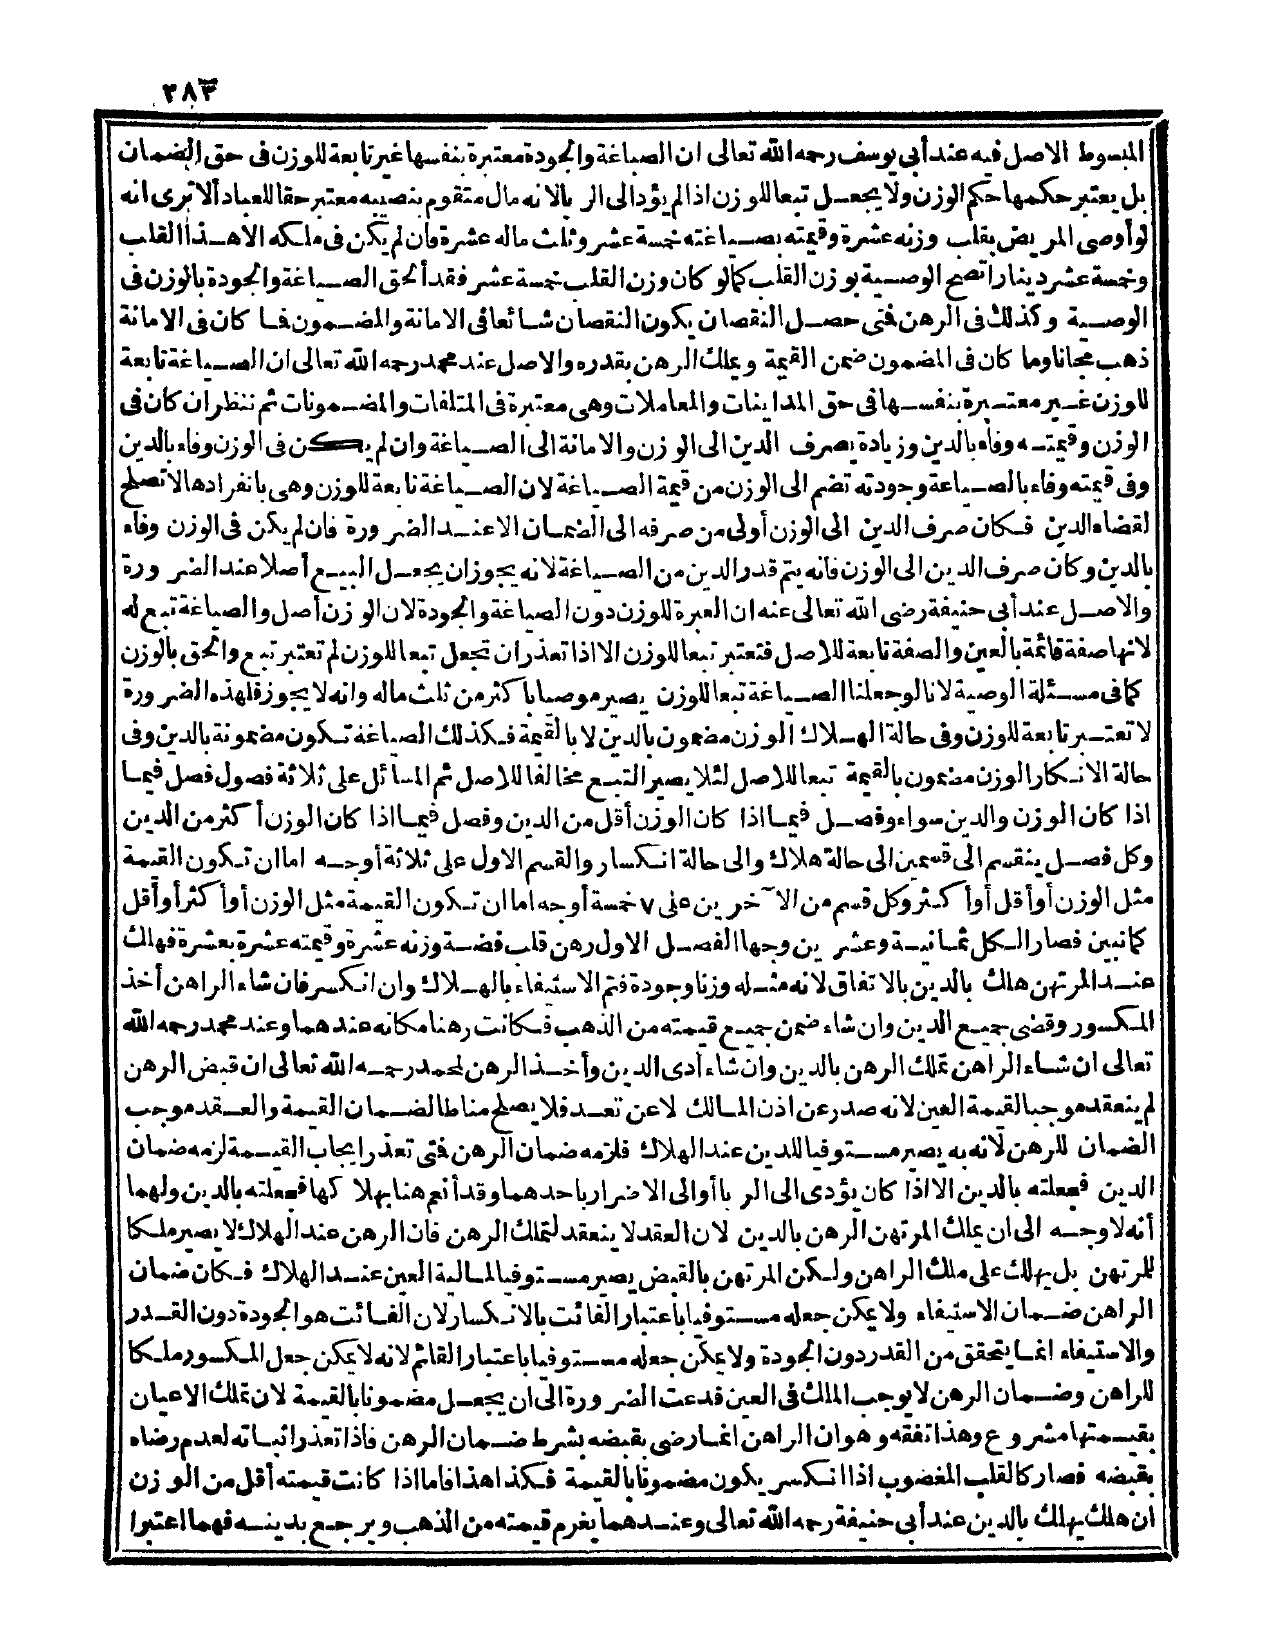 ٢٨٣
المبسوط الاصل فيه عند أبي يوسف رحمه الله تعالى ان الصياغة والجودة معتبرة بنفسها غير تابعة للوزن فى حق الضمان
بل يعتبر حكمها حكم الوزن ولا يجعل تبعا للوزن اذا لم يؤد الى الربا لانه مال متقوم بنصيبه معتبر حقا للعباد ألا ترى انه
لو أوصى المريض بقلب وزنه عشرة وقيمته بصياغته خمسة عشر وثلث ماله عشرة فان لم يكن فى ملكه الا هذا القلب
وخمسة عشر دينارا تصح الوصية بوزن القلب كما لو كان وزن القلب خمسة عشر فقد ألحق الصياغة والجودة بالوزن فى
الوصية وكذلك فى الرهن فتى حصل النقصان يكون النقصان شائعا فى الامانة والمضمون فما كان فى الامانة
ذهب مجانا وما كان فى المضمون ضمن القيمة ويملك الرهن بقدره والاصل عند محمد رحمه الله تعالى ان الصياغة تابعة
للوزن غير معتبرة بنفسها فى حق المداينات والمعاملات وهى معتبرة فى المتلفات والمضمونات ثم ننظر ان كان فى
الوزن وقيمته وفاء بالدين وزيادة يصرف الدين الى الوزن والامانة الى الصياغة وان لم يكن فى الوزن وفاء بالدين
وفى قيمته وفاء بالصياغة وجودته تضم الى الوزن من قيمة الصياغة لان الصياغة تابعة للوزن وهى بانفرادها لا تصلح
لقضاء الدين فكان صرف الدين الى الوزن أولى من صرفه الى الضمان الا عند الضرورة فان لم يكن فى الوزن وفاء
بالدين وكان صرف الدين الى الوزن فانه يتم قدر الدين من الصياغة لانه يجوز ان يجعل البيع أصلا عند الضرورة
والاصل عند أبى حنيفة رضى الله تعالى عنه ان العبرة للوزن دون الصياغة والجودة لان الوزن أصل والصياغة تبع له
لانها صفة قائمة بالعين والصفة تابعة للاصل فتعتبر تبعا للوزن الا اذا تعذر ان تجعل تبعا للوزن لم تعتبر تبع والحق بالوزن
كما فى مسئلة الوصية لانا لو جعلنا الصياغة تبعا للوزن يصير موصيا باكثر من ثلث ماله وانه لا يجوز فلهذه الضرورة
لا تعتبر تابعة للوزن وفى حالة الهلاك الوزن مضمون بالدين لا بالقيمة فكذلك الصياغة تكون مضمونة بالدين وفى
حالة الانكار الوزن مضمون بالقيمة تبعا للاصل لئلا يصير التبع مخالفا للاصل ثم المسائل على ثلاثة فصول فصل فيما
اذا كان الوزن والدين سواء وفصل فيما اذا كان الوزن أقل من الدين وفصل فيما اذا كان الوزن أكثر من الدين
وكل فصل ينقسم الى قسمين الى حالة هلاك والى حالة انكسار والقسم الاول على ثلاثة أوجه اما ان تكون القيمة
مثل الوزن أو أقل أو أكثر وكل قسم من الآخرين على ٧ خمسة أوجه اما ان تكون القيمة مثل الوزن أو أكثر أو أقل
كما نبين فصار الكل ثمانية وعشرين وجها الفصل الاول رهن قلب فضة وزنه عشرة وقيمته عشرة بعشرة فهلك
عند المرتهن هلك بالدين بالاتفاق لانه مثله وزنا وجودة فتم الاستيفاء بالهلاك وان انكسر فان شاء الراهن أخذ
المكسور وقضى جميع الدين وان شاء ضمن جميع قيمته من الذهب فكانت رهنا مكانه عندهما وعند محمد رحمه الله
تعالى ان شاء الراهن تملك الرهن بالدين وان شاء أدى الدين وأخذ الرهن لمحمد رحمه الله تعالى ان قبض الرهن
لم ينعقد موجبا لقيمة العين لانه صدر عن اذن المالك لا عن تعد فلا يصلح مناطا لضمان القيمة والعقد موجب
الضمان للرهن لانه به يصير مستوفيا للدين عند الهلاك فلزمه ضمان الرهن فتى تعذر ايجاب القيمة لزمه ضمان
الدين فجعلته بالدين الا اذا كان يؤدى الى الربا أو الى الاضرار باحدهما وقد أنعم هنا بهلاكها فجعلته بالدين ولهما
أنه لا وجه الى ان يملك المرتهن الرهن بالدين لان العقد لا ينعقد لتملك الرهن فان الرهن عند الهلاك لا يصير ملكا
للمرتهن بل يهلك على ملك الراهن ولكن المرتهن بالقبض يصير مستوفيا لمالية العين عند الهلاك فكان ضمان
الراهن ضمان الاستيفاء ولا يمكن جعله مستوفيا باعتبار الفائت بالانكسار لان الفائت هو الجودة دون القدر
والاستيفاء انما يتحقق من القدر دون الجودة ولا يمكن جعله مستوفيا باعتبار القائم لانه لا يمكن جعل المكسور ملكا
للراهن وضمان الرهن لا يوجب الملك فى العين فدعت الضرورة الى ان يجعل مضمونا بالقيمة لان تملك الاعيان
بقيمتها مشروع وهذا تفقه وهو ان الراهن انما رضى بقبضه بشرط ضمان الرهن فاذا تعذر اثباته لعدم رضاه
بقبضه فصار كالقلب المغصوب اذا انكسر يكون مضمونا بالقيمة فكذا هذا فاما اذا كانت قيمته أقل من الوزن
ان هلك يهلك بالدين عند أبى حنيفة رحمه الله تعالى وعندهما يغرم قيمته من الذهب ويرجع بدينه فهما اعتبرا